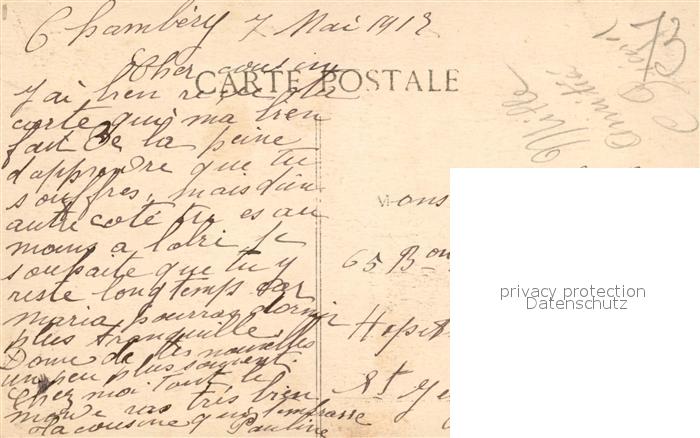 Chambéry 7 Mai 191
Cher cousin
CARTE POSTALE
J'ai bien reçu ta
carte qui ma bien
fait de la peine
d'apprendre que tu
souffres, mais d'un
autre coté tu es au
moins a l'abri je
souhaite que tu y
reste longtemps car
maria pourra dormir
plus tranquille
Donne de tes nouvelles
un peu plus souvent.
Chez moi tout le
monde vas très bien
Ta cousine qui t'embrasse
Pauline
Mille
amitiés
73
Mons
65 Bon
Hopit
St
privacy protection
Datenschutz